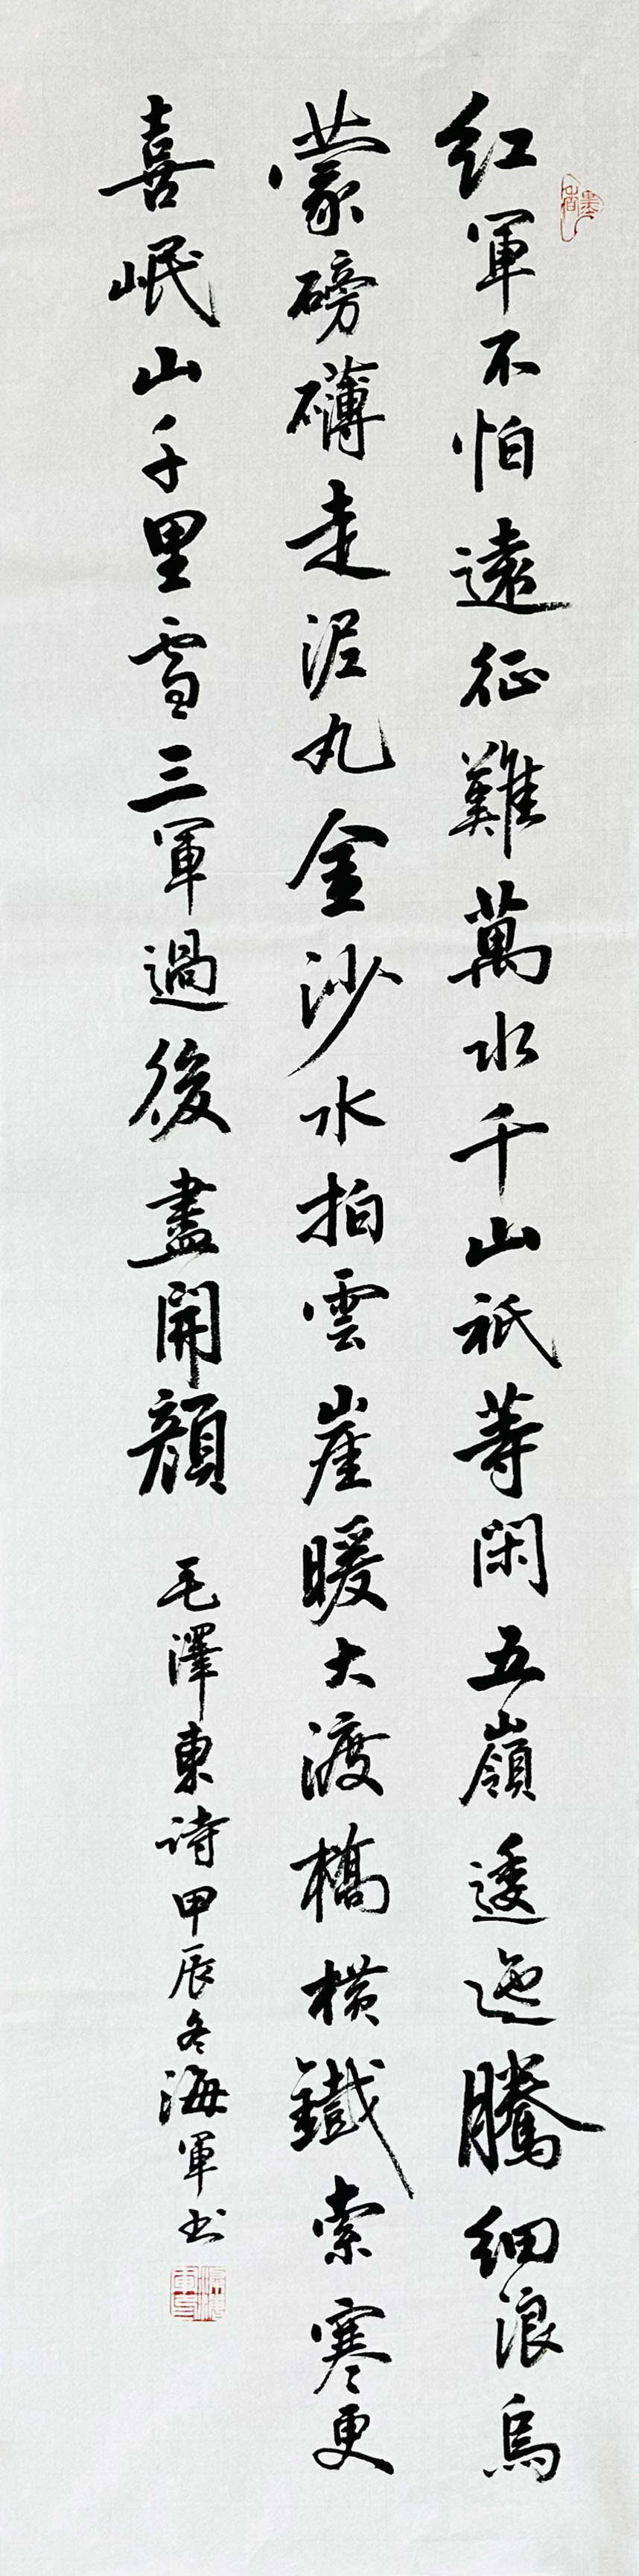 红軍不怕遠征難萬水千山祇等閑五嶺逶迤騰細浪烏
蒙磅礴走泥丸金沙水拍雲崖暖大渡橋橫鐵索寒更
喜岷山千里雪三軍過後盡開顏
毛澤東诗甲辰冬海軍书